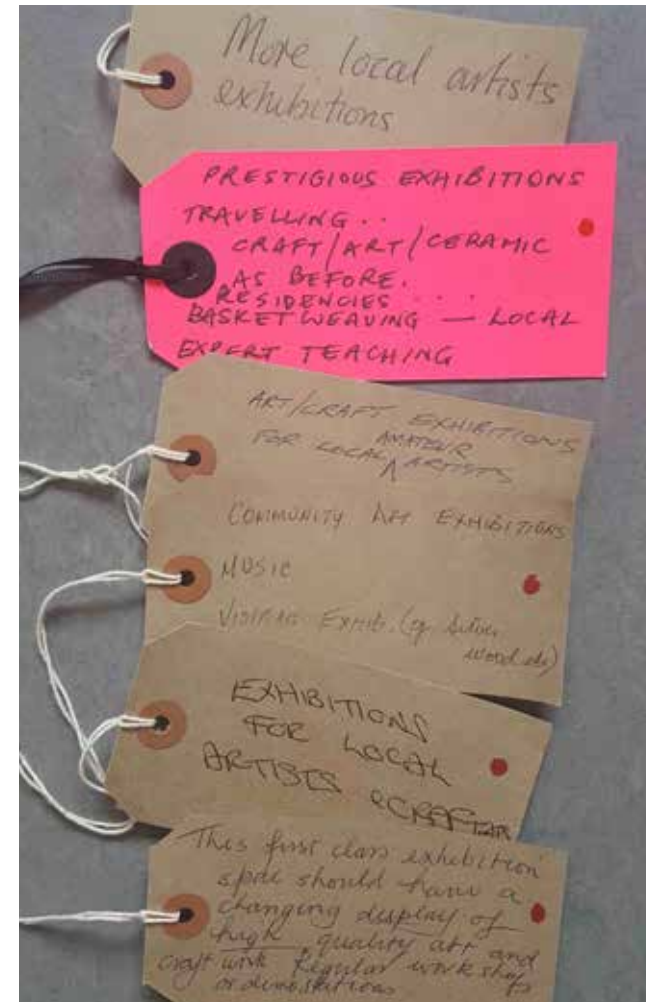 More local artists
exhibitions
PRESTIGIOUS EXHIBITIONS
TRAVELLING ..
CRAFT/ART/CERAMIC
AS BEFORE.
RESIDENCIES ....
BASKETWEAVING — LOCAL
EXPERT TEACHING
ART/CRAFT EXHIBITIONS
FOR LOCAL AMATEUR ARTISTS
COMMUNITY ART EXHIBITIONS
MUSIC
VISITING EXHIB. (eg silver
wood etc)
EXHIBITIONS
FOR LOCAL
ARTISTS &
This first class exhibition
space should have a
changing display of
high quality art and
craft work Regular workshops
or